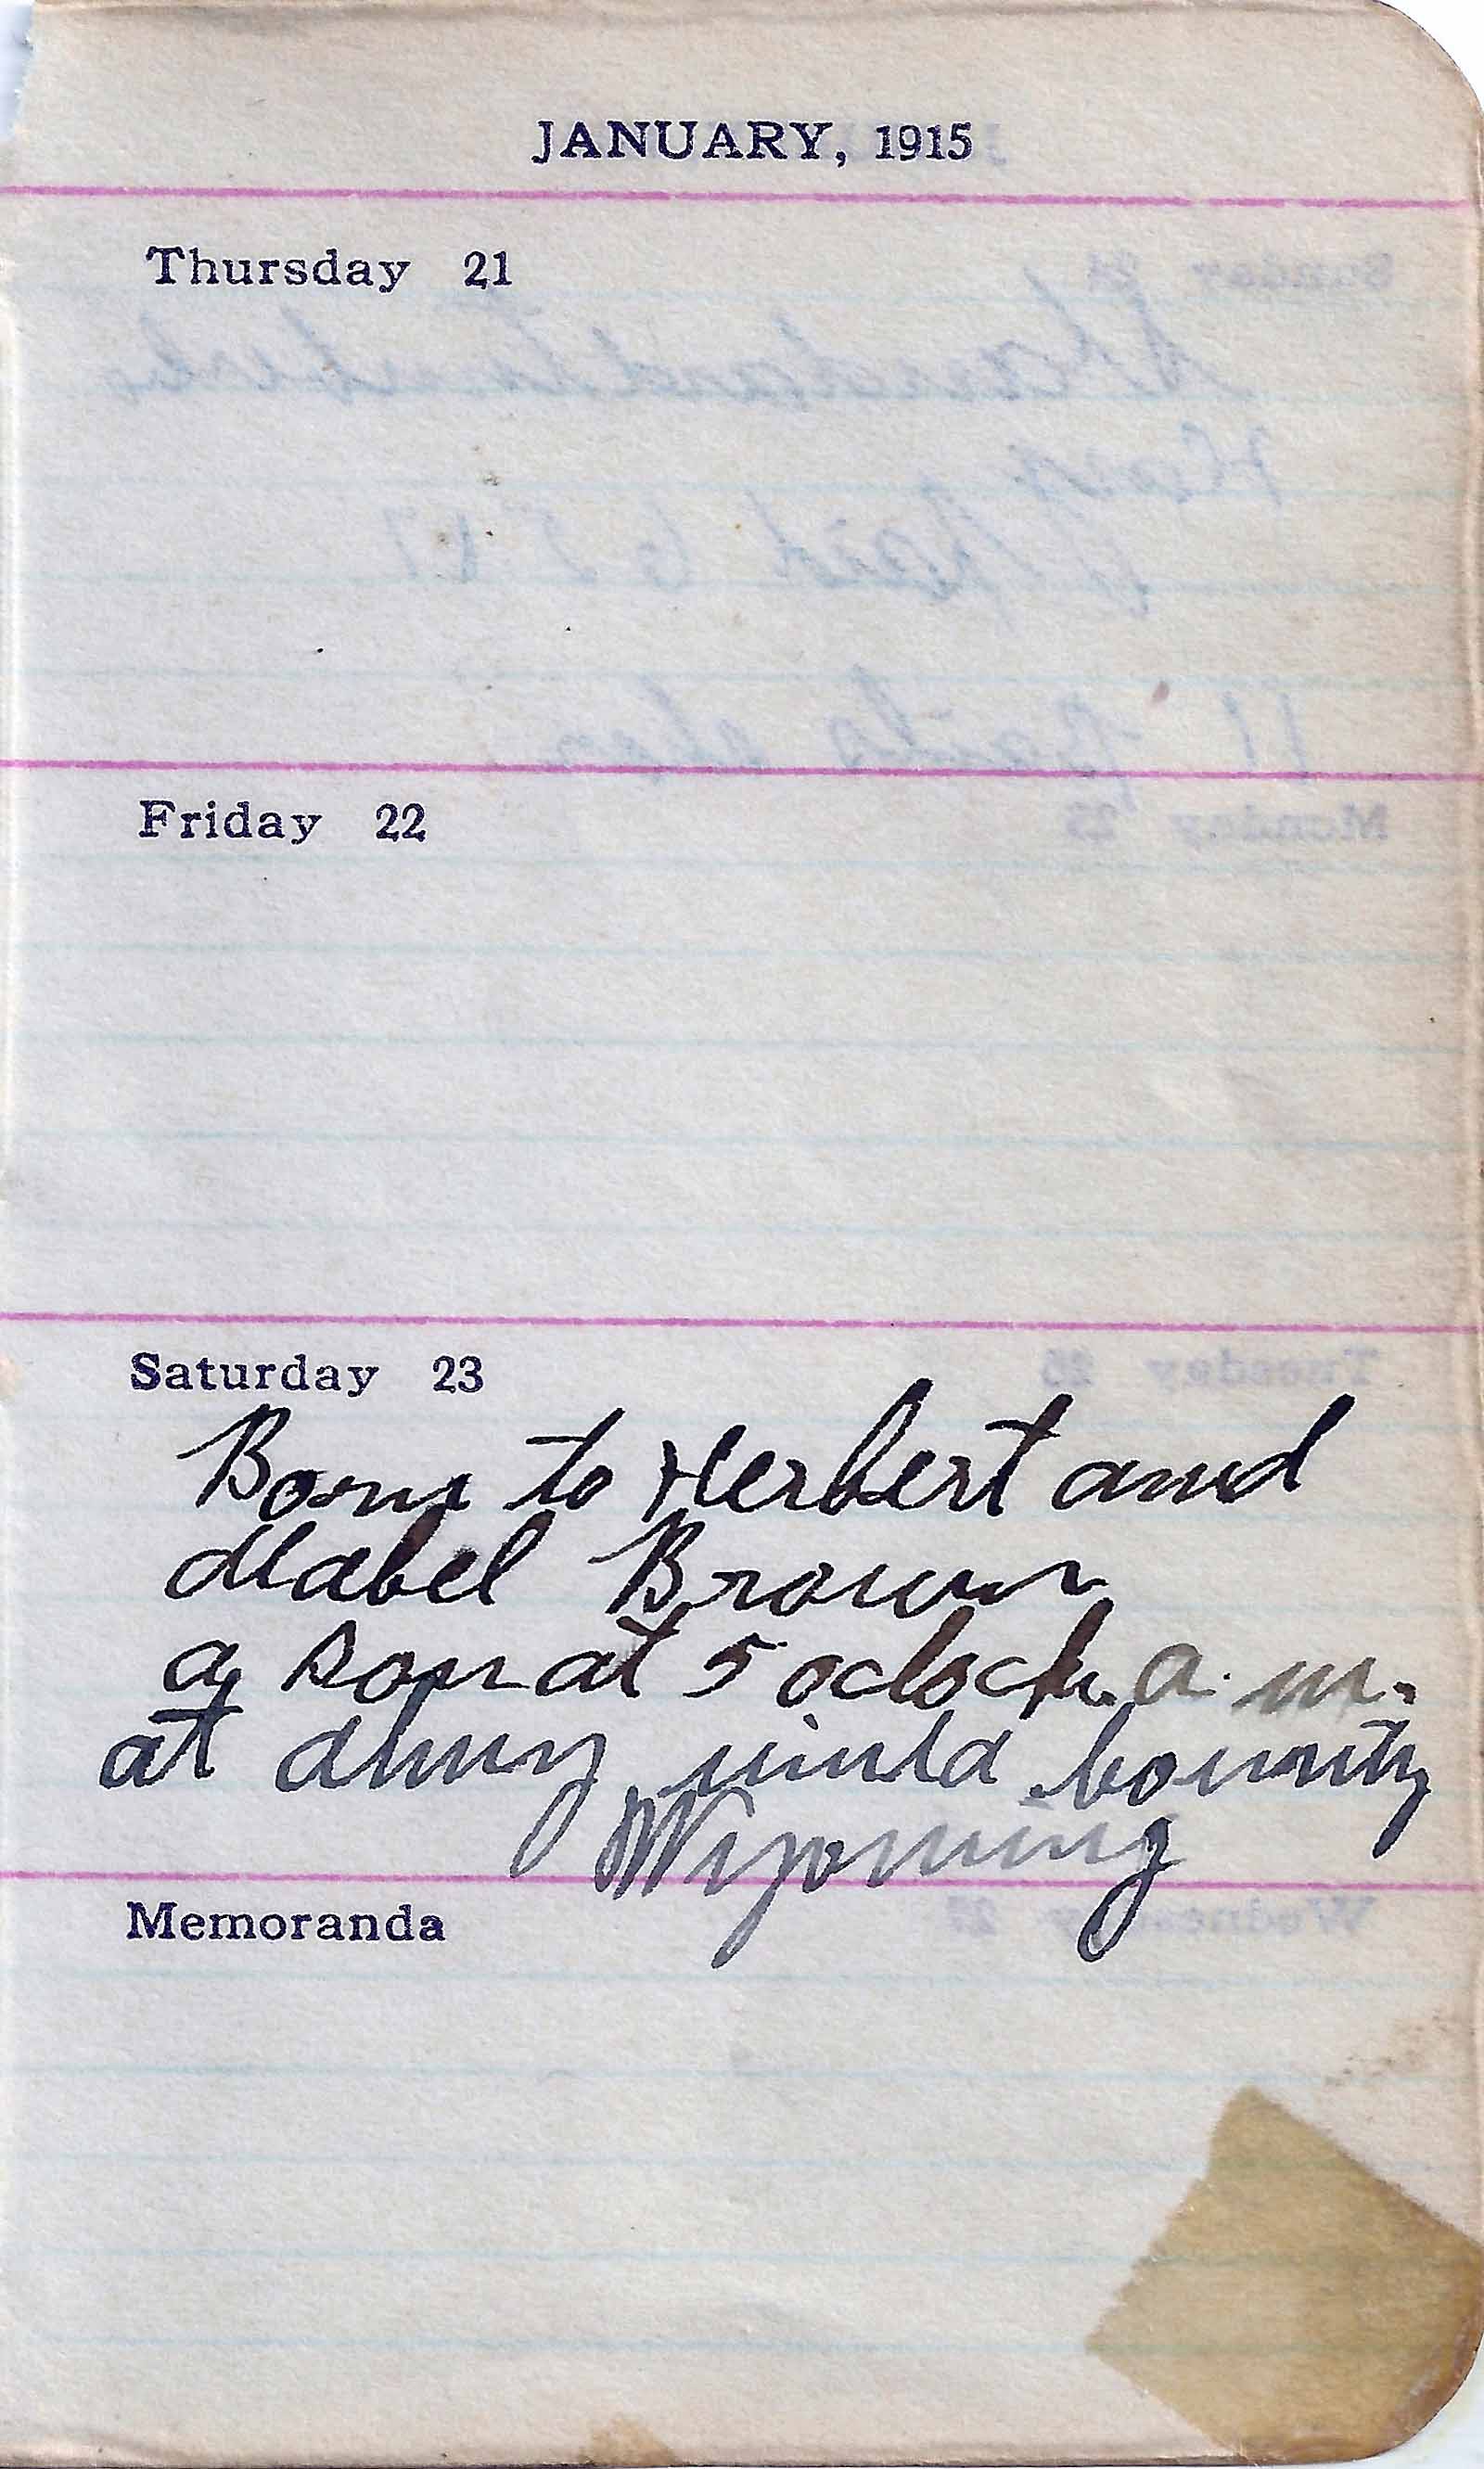 JANUARY, 1915
Thursday 21
Friday 22
Saturday 23
Born to Herbert and
Mabel Brown
a son at 5 oclock. a. m.
at county
Wyoming
Memoranda